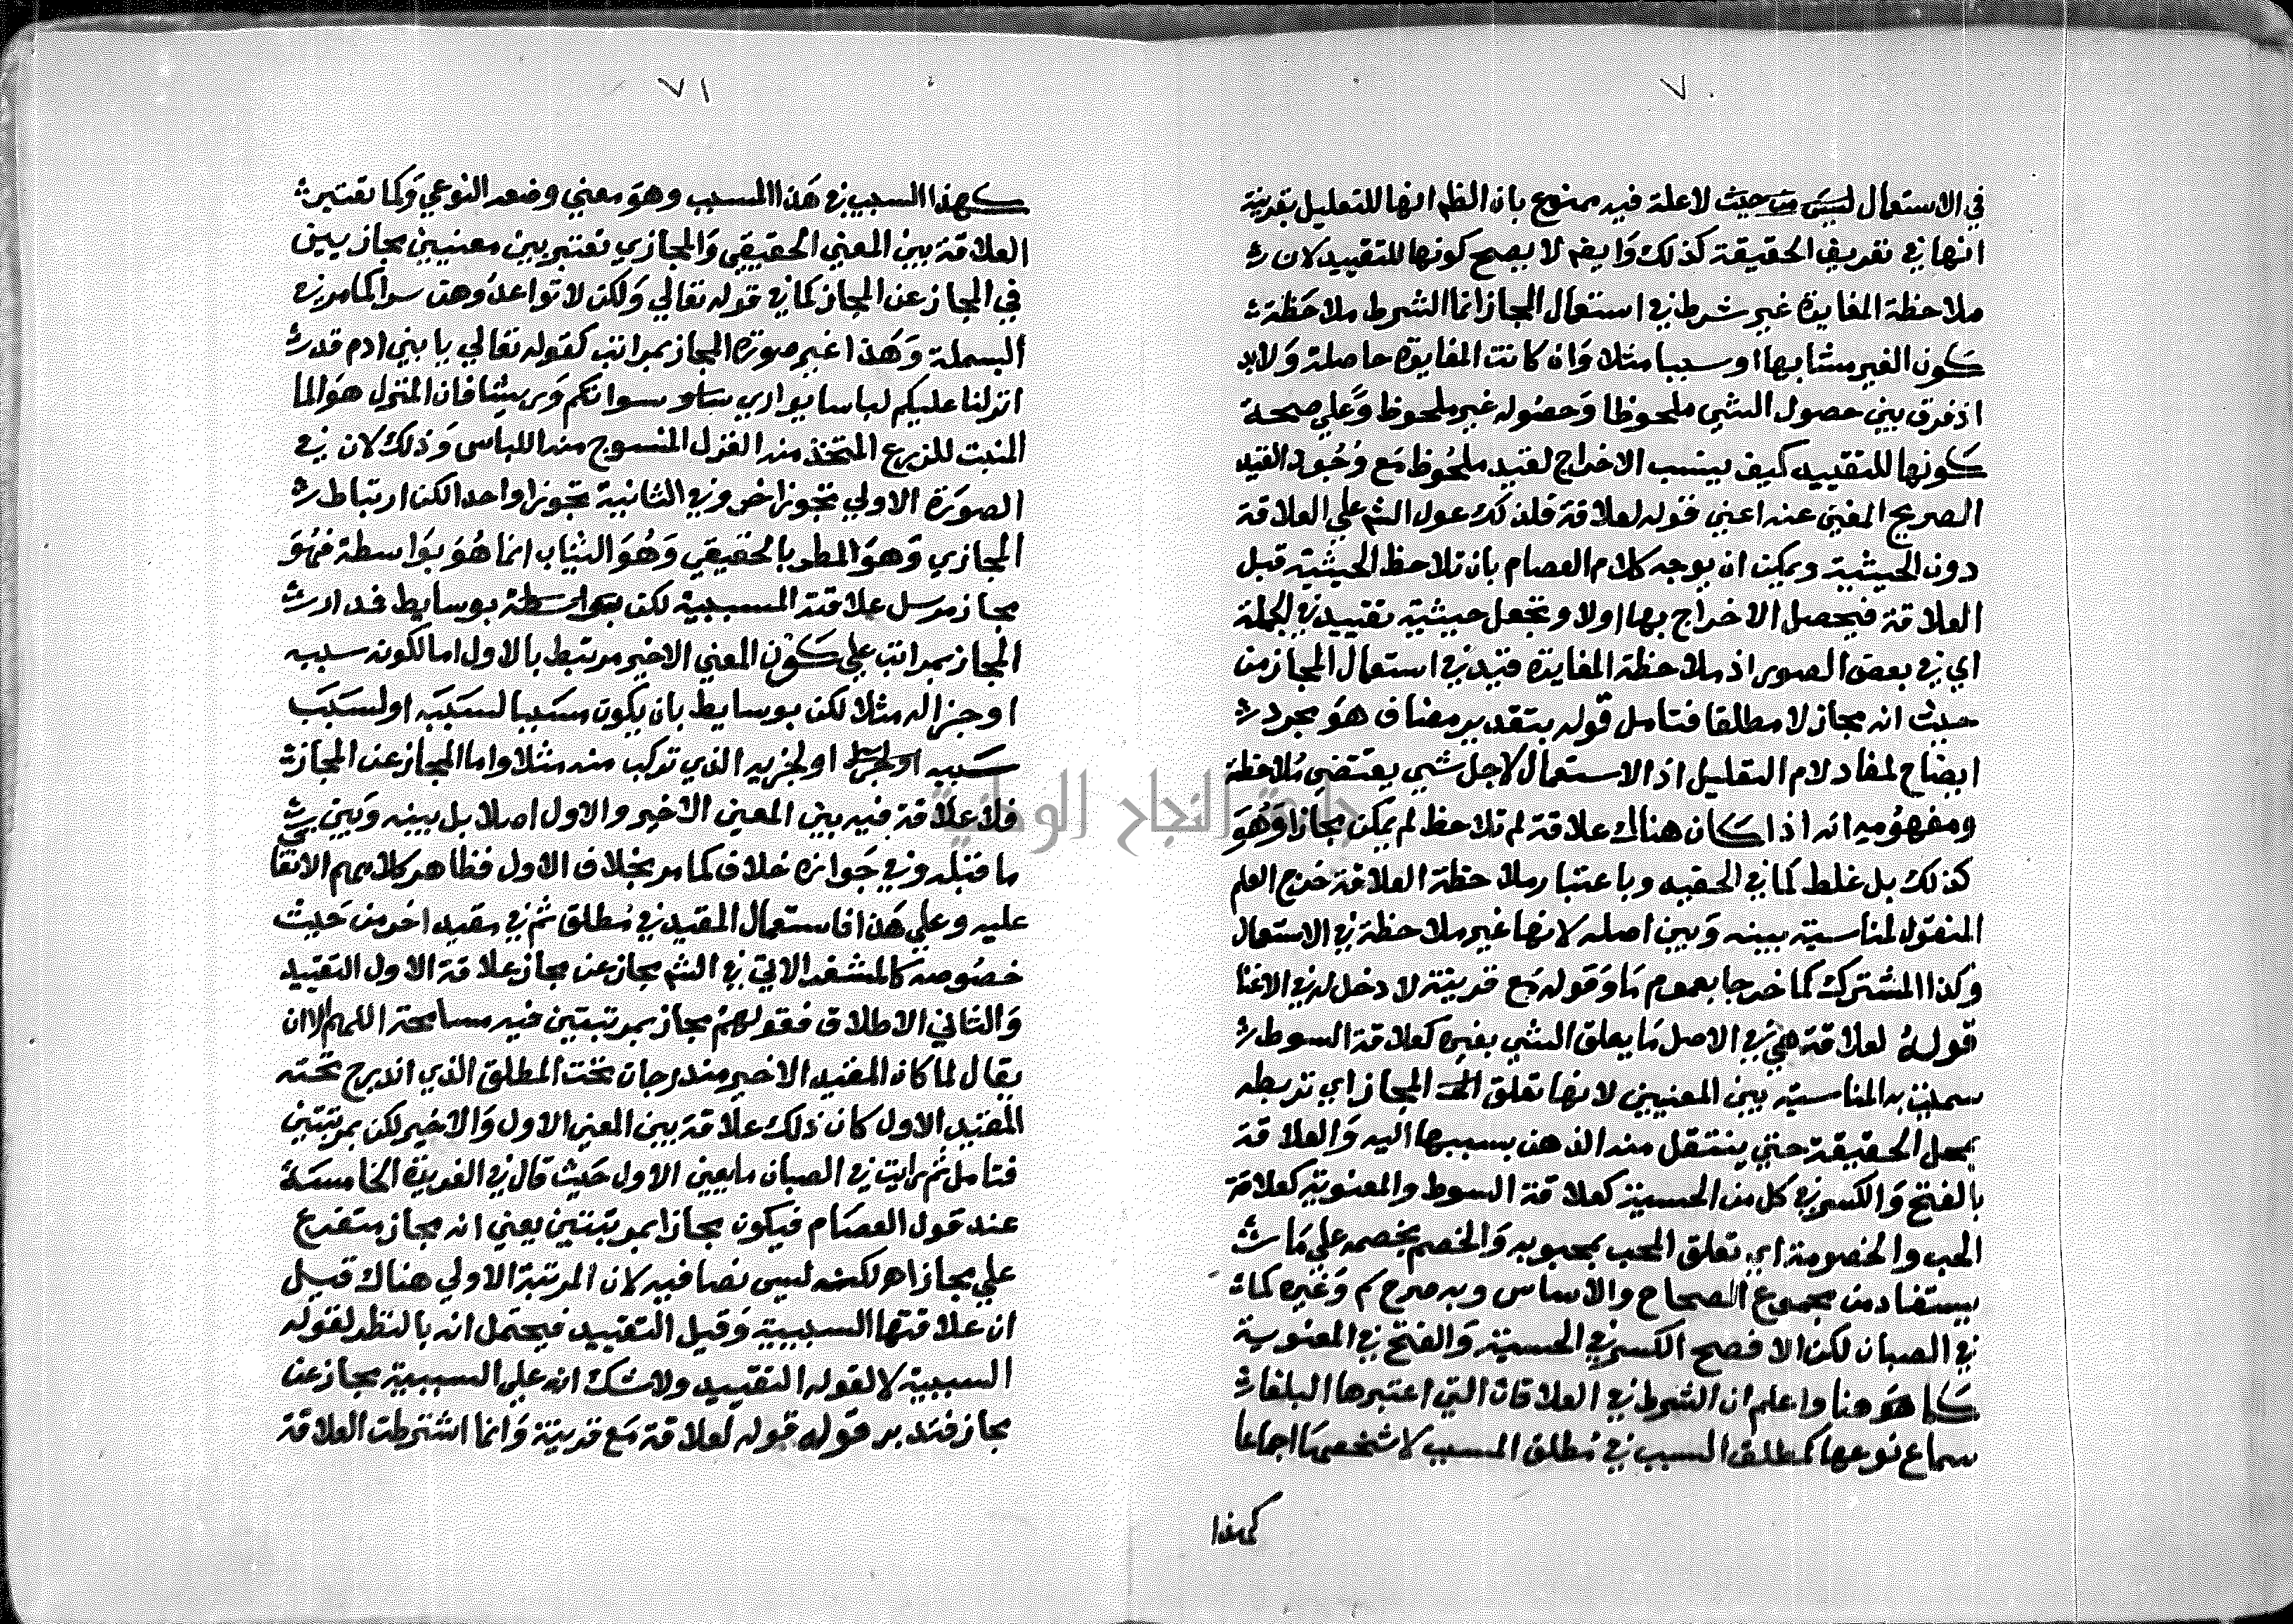 ٧٠
في الاستعمال ليس من حيث لا علة فيه ممنوع بان الظم انها للتعليل بقرينة
انها في تعريف الحقيقة كذلك وايضا لا يصح كونها للتقييد لان
ملاحظة المغايرة غير شرط في استعمال المجاز انما الشرط ملاحظة
كون الغير مشابها او سببا مثلا وان كانت المغايرة حاصلة ولا بد
اذ فرق بين حصول الشي ملحوظا وحصوله غير ملحوظ وعلي صحة
كونها للتقييد كيف ينسب الاخراج لقيد ملحوظ مع وجود القيد
الصريح المغني عنه اعني قوله لعلاقة فلذلك عول الشم علي العلاقة
دون الحيثية ويمكن ان يوجه كلام العصام بان تلاحظ الحيثية قبل
العلاقة فيحصل الاخراج بها اولا وتجعل حيثية تقييد في الجملة
اي في بعض الصور اذ ملاحظة المغايرة قيد في استعمال المجاز من
حيث انه مجاز لا مطلقا فتامل قوله بتقدير مضاف هو مجرد
ايضاح لمفاد لام التعليل اذ الاستعمال لاجل شي يقتضي ملاحظة
ومفهومه انه اذا كان هناك علاقة لم تلاحظ لم يكن مجازا وهو
كذلك بل غلط كما في الحفيد وباعتبار ملاحظة العلاقة خرج العلم
المنقول لمناسبة بينه وبين اصله لانها غير ملاحظة في الاستعمال
وكذا المشترك كما خرجا بعموم ما وقوله مع قرينة لا دخل له في الاغنا
قوله لعلاقة هي في الاصل ما يعلق الشي بغيره كعلاقة السوط
سميت به المناسبة بين المعنيين لانها تعلق المجاز اي تربطه
بمحل الحقيقة حتي ينتقل منه الذهن بسببها اليه والعلاقة
بالفتح والكسر في كل من الحسية كعلاقة السوط والمعنوية كعلاقة
الحب والخصومة اي تعلق المحب بمحبوبه والخصم بخصمه علي ما
يستفاد من مجموع الصحاح والاساس وبه صرح كم وغيره كما
في الصبان لكن الافصح الكسر في الحسية والفتح في المعنوية
كما هو هنا واعلم ان الشرط في العلاقات التي اعتبرها البلغا
سماع نوعها كمطلق السبب في مطلق المسبب لا شخصها اجماعا
كهذا
٧١
كهذا السبب في هذا المسبب وهو معني وضعه النوعي وكما تعتبر
العلاقة بين المعني الحقيقي والمجازي تعتبر بين معنيين مجازيين
في المجاز عن المجاز كما في قوله تعالي ولكن لا تواعدوهن سرا كما مر في
البسملة وهذا غير صورة المجاز بمراتب كقوله تعالي يا بني ادم قد
انزلنا عليكم لباسا يواري سواتكم وريشا فان المنزل هو الما
المنبت للزرع المتخذ منه الغزل المنسوج منه اللباس وذلك لان في
الصورة الاولي تجوز اخر وفي الثانية تجوزا واحدا لكن ارتباط
المجازي وهو المطر بالحقيقي وهو الثياب انما هو بواسطة فهو
مجاز مرسل علاقته المسببية لكن بوسايط فمدار
المجاز بمراتب علي كون المعني الاخير مرتبط بالاول اما لكونه سببه
او جزاله مثلا لكن بوسايط بان يكون مسببا لسببه او لسبب
سببه او لجزيه الذي تركب منه مثلا واما المجاز عن المجاز
فلا علاقة فيه بين المعني الاخير والاول اصلا بل بينه وبين
ما قبله وفي جوازه خلاف كما مر بخلاف الاول فظاهر كلامهم الاتفا
عليه وعلي هذا فاستعمال المقيد في مطلق ثم في مقيد اخر من حيث
خصوصه كالمشفر الاتي في الشم مجاز عن مجاز علاقة الاول التقييد
والثاني الاطلاق فقولهم مجاز بمرتبتين فيه مسامحة اللهم الا ان
يقال لما كان المقيد الاخير مندرجا تحت المطلق الذي اندرج تحته
المقيد الاول كان ذلك علاقة بين المعني الاول والاخير لكن بمرتبتين
فتامل ثم رايت في الصبان ما يعين الاول حيث قال في الفريدة الخامسة
عند قول العصام فيكون مجازا بمرتبتين يعني انه مجاز متفرع
علي مجاز اهـ لكنه ليس نصا فيه لان المرتبة الاولي هناك قيل
ان علاقتها السببية وقيل التقييد فيحتمل انه بالنظر لقوله
السببية لا لقوله التقييد ولا شك انه علي السببية مجاز عن
مجاز فتدبر قوله قوله لعلاقة مع قرينة وانما اشترطت العلاقة
جامعة النجاح الوطنية